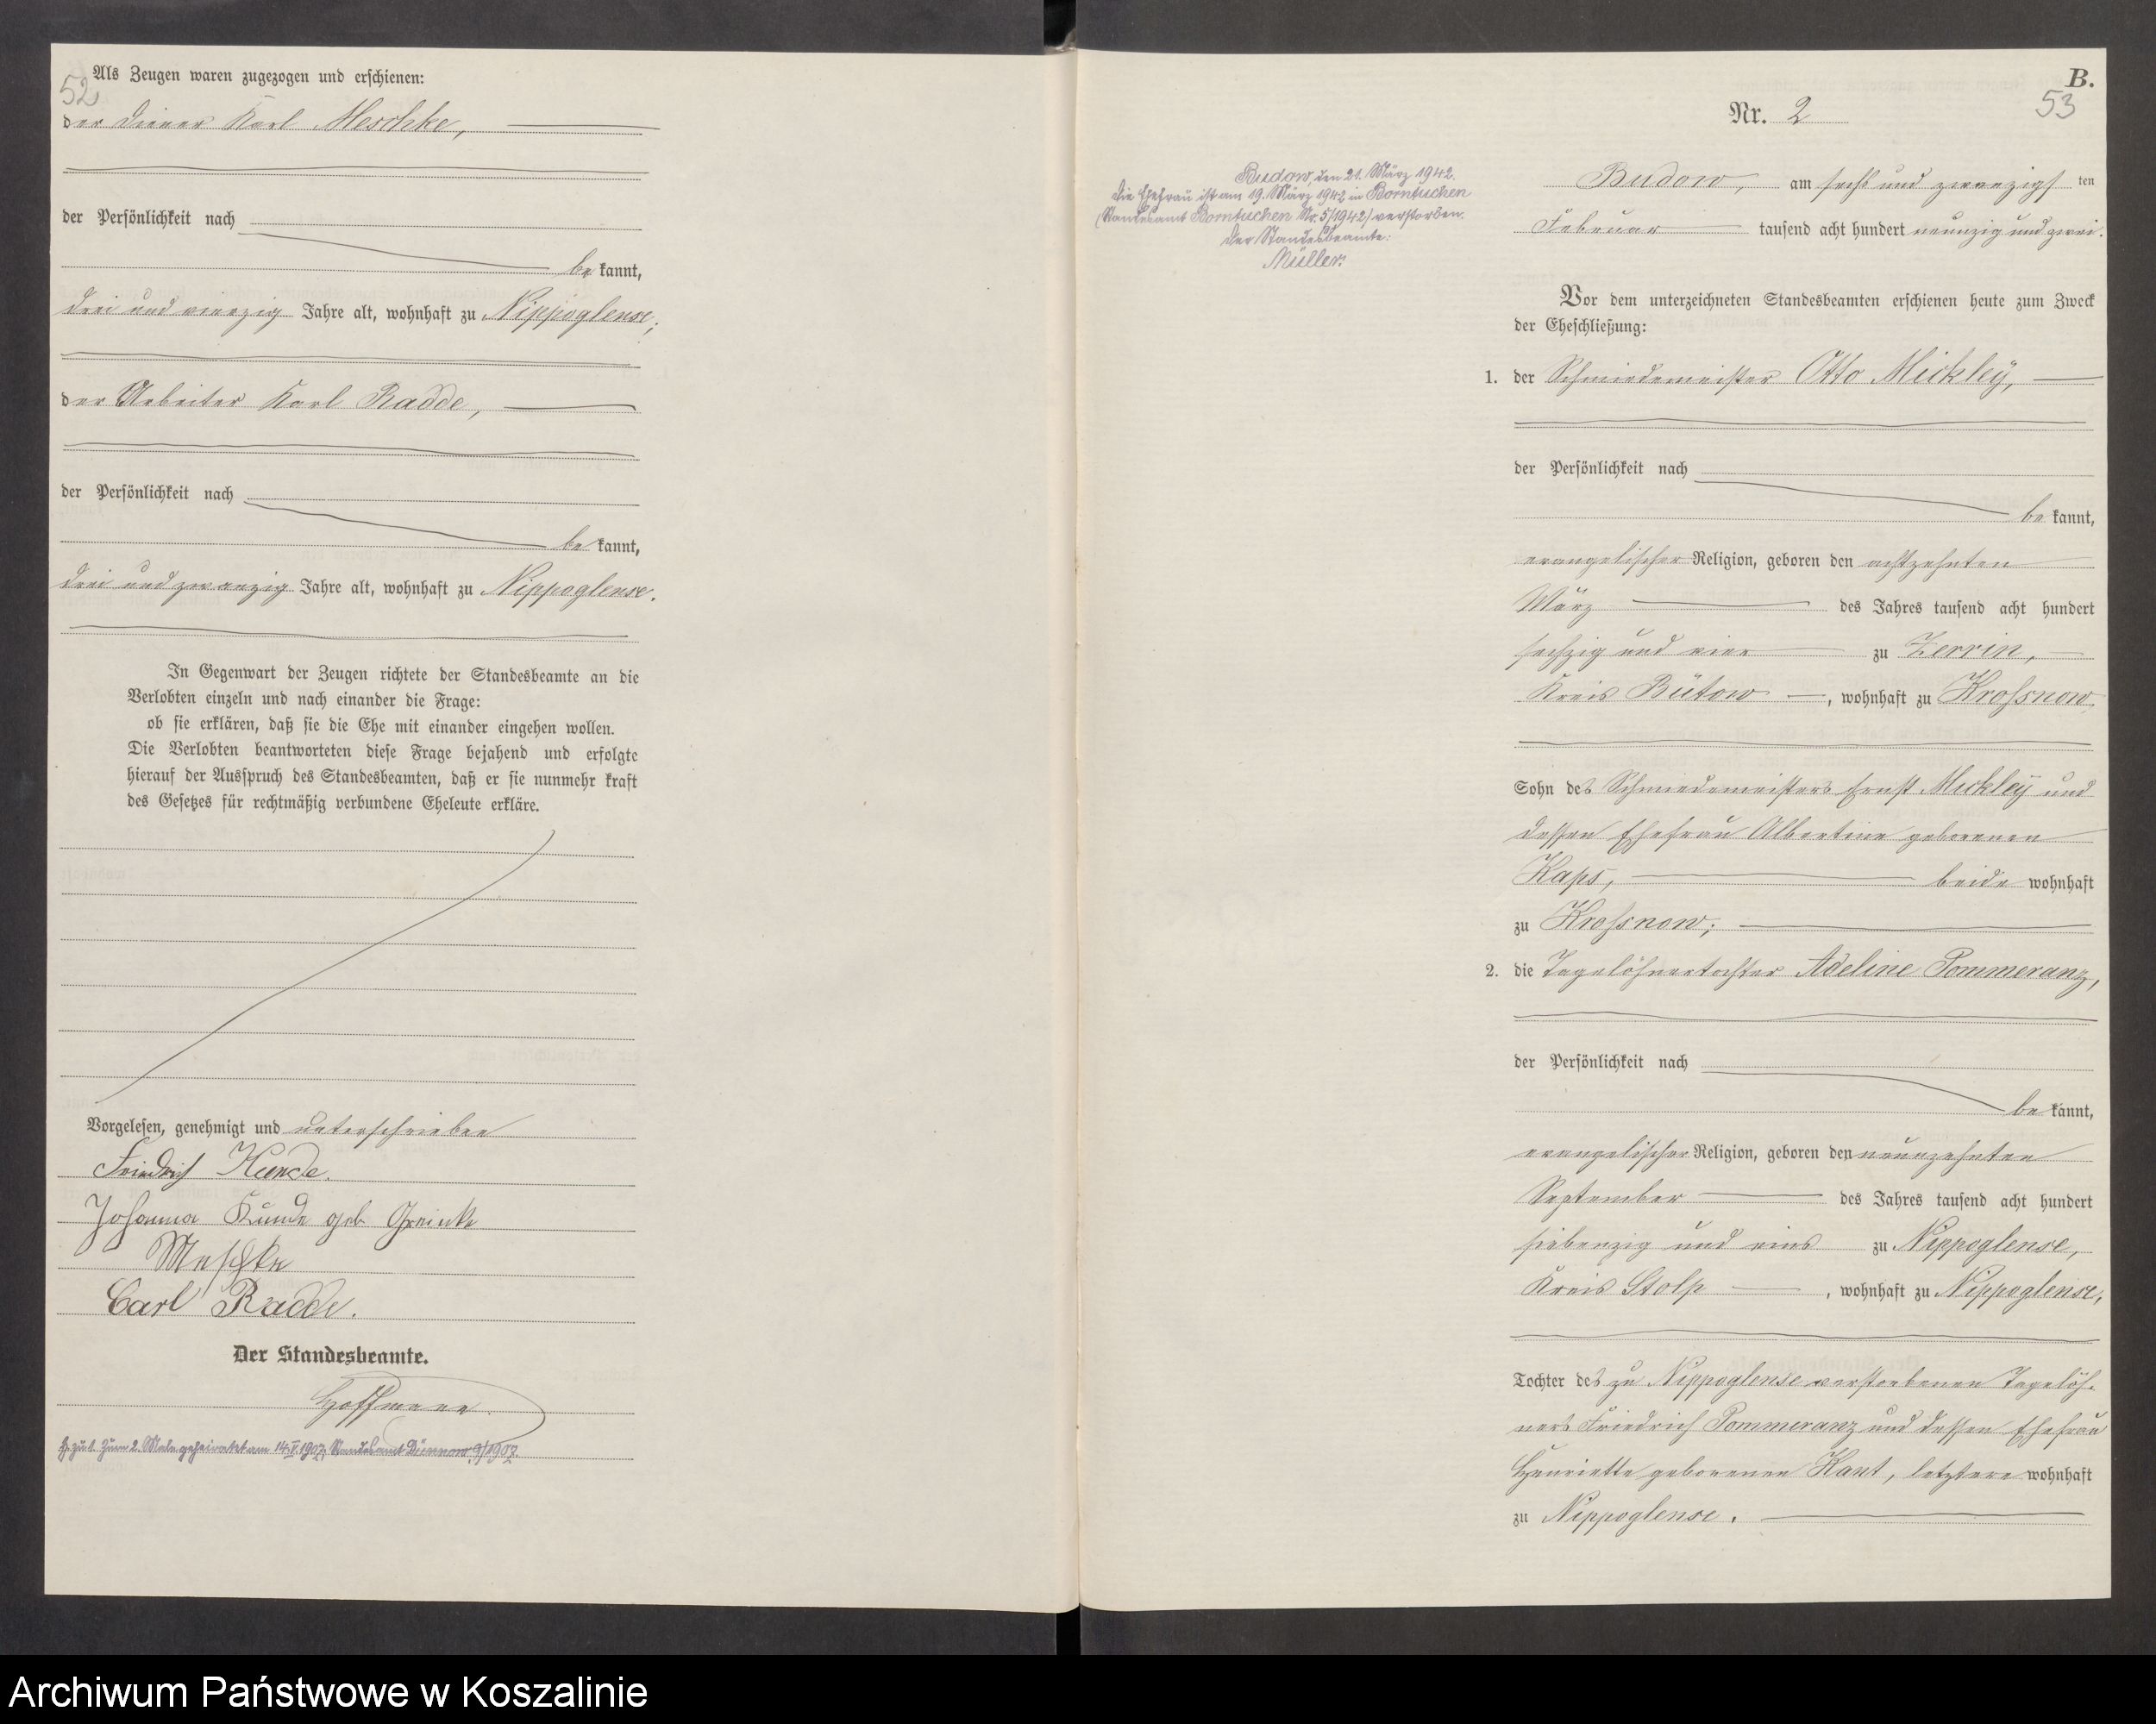 52
Als Zeugen waren zugezogen und erschienen:
der Diener Karl Meschke,
der Persönlichkeit nach
be kannt,
drei und vierzig Jahre alt, wohnhaft zu Nippoglense;
der Arbeiter Karl Radde,
der Persönlichkeit nach
be kannt,
drei und zwanzig Jahre alt, wohnhaft zu Nippoglense.
In Gegenwart der Zeugen richtete der Standesbeamte an die
Verlobten einzeln und nach einander die Frage:
ob sie erklären, daß sie die Ehe mit einander eingehen wollen.
Die Verlobten beantworteten diese Frage bejahend und erfolgte
hierauf der Ausspruch des Standesbeamten, daß er sie nunmehr kraft
des Gesetzes für rechtmäßig verbundene Eheleute erkläre.
Vorgelesen, genehmigt und unterschrieben
Friedrich Kunde.
Johanna Kunde geb Greinke
Meschke
Carl Radde.
Der Standesbeamte.
Hoffmann.
zu 1. Zum 2. Male geheiratet am 14.V.1907, Standesamt Dünnow 9/1907.
B.
53
Nr. 2
Budow, den 21. März 1942.
Die Ehefrau ist am 19. März 1942 in Borntuchen
(Standesamt Borntuchen Nr. 5/1942) verstorben.
Der Standesbeamte:
Müller.
Budow, am sechs und zwanzigs ten
Februar tausend acht hundert neunzig und zwei.
Vor dem unterzeichneten Standesbeamten erschienen heute zum Zweck
der Eheschließung:
1. der Schmiedemeister Otto Mickley,
der Persönlichkeit nach
be kannt,
evangelischer Religion, geboren den achtzehnten
März des Jahres tausend acht hundert
sechzig und vier zu Zerrin,
Kreis Bütow, wohnhaft zu Krossnow,
Sohn des Schmiedemeisters Ernst Mickley und
dessen Ehefrau Albertine geborenen
Kaps, beide wohnhaft
zu Krossnow;
2. die Tagelöhnertochter Adeline Pommeranz,
der Persönlichkeit nach
be kannt,
evangelischer Religion, geboren den neunzehnten
September des Jahres tausend acht hundert
siebenzig und eins zu Nippoglense,
Kreis Stolp, wohnhaft zu Nippoglense,
Tochter des zu Nippoglense verstorbenen Tagelöh-
ners Friedrich Pommeranz und dessen Ehefrau
Henriette geborenen Kant, letztere wohnhaft
zu Nippoglense.
Archiwum Państwowe w Koszalinie